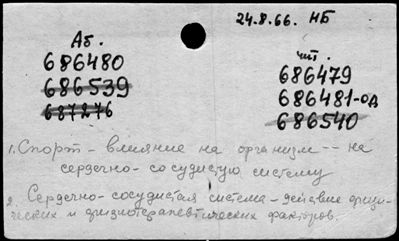 24.8.66. НБ
Аб.
686480
686539
687276
чит.
686479
686481-од
686540
1. Спорт - влияние на организм -- на
сердечно-сосудистую систему
2. Сердечно-сосудистая система - действие физи-
ческих и физиотерапевтических факторов.